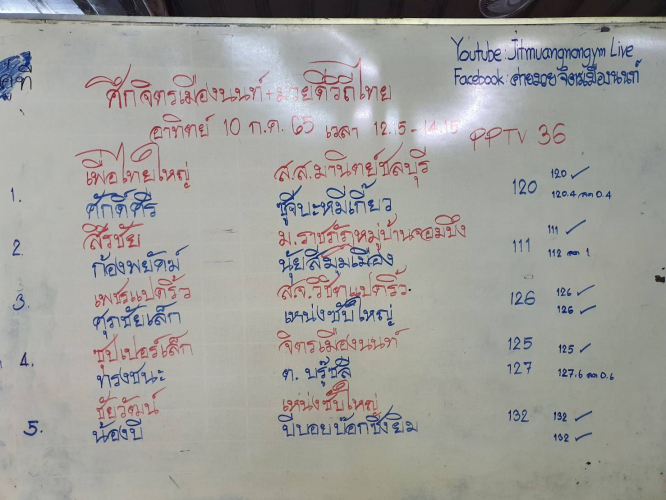 Youtube: Jitmuangnongym Live
Facebook: ค่ายมวย จิตรเมืองนนท์
คู่ที่
ศึกจิตรเมืองนนท์+มวยดีวิถีไทย
อาทิตย์ 10 ก.ค. 65 เวลา 12.15-14.15 PPTV 36
เพื่อไทยใหญ่ ส.ส.มานิตย์ชลบุรี 120 ✓
1. 120
ศักดิ์ศรี ซู้จุ๊บะหมี่เกี๊ยว 120.4 ลด 0.4
สิรชัย ม.ราชภัฏหมู่บ้านจอมบึง 111 ✓
2. 111
ก้องพยัคฆ์ นุ้ยสี่มุมเมือง 112 ลด 1
เพชรแปดริ้ว ส.จ.วิชิตแปดริ้ว 126 ✓
3. 126
ศุภชัยเล็ก เหน่งซับใหญ่ 126 ✓
ซุปเปอร์เล็ก จิตรเมืองนนท์ 125 125 ✓
4.
ทรงชนะ ต. บรู๊ซลี 127 127.6 ลด 0.6
ชัยวัฒน์ เหน่งซับใหญ่
5. 132 132 ✓
น้องบี บีบอยบ๊อกซิ่งยิม 132 ✓